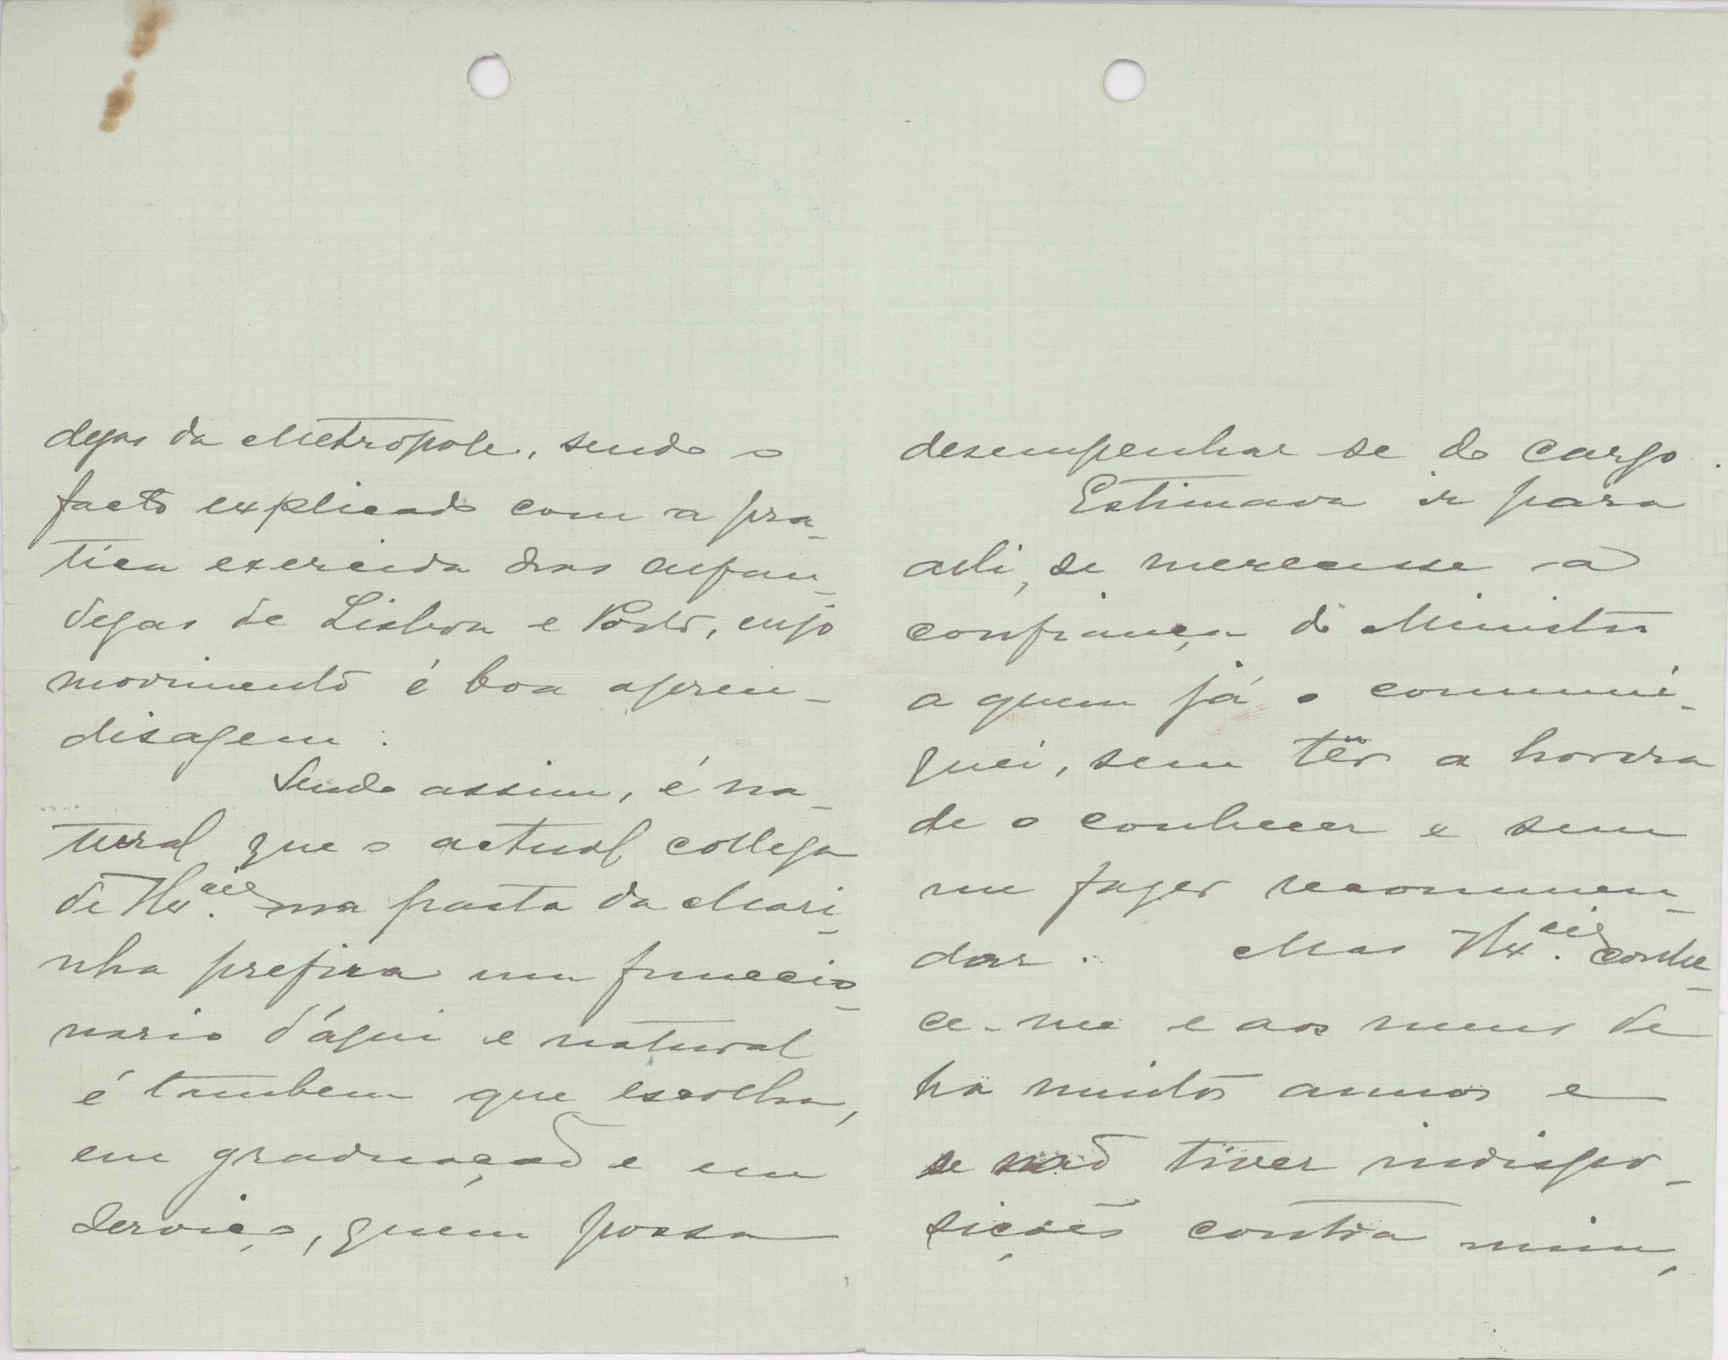 degas da Metropole, sendo o
facto explicado com a pra-
tica exercida nas alfan-
degas de Lisboa e Porto, cujo
movimento é boa apren-
disagem.
Sendo assim, é na-
tural que o actual collega
de V. Ex.cia na pasta da Mari-
nha prefira um funccio-
nario d'áqui e natural
é tambem que escolha,
em graduação e em
serviço, quem possa
desempenhar se do cargo.
Estimava ir para
alli, se merecesse a
confiança do Ministro
a quem já o communi-
quei, sem ter a honra
de o conhecer e sem
me fazer recommen-
dar. Mas V. Ex.cia conhe-
ce-me e aos meus de
ha muitos annos e
se não tiver indispo-
sições contra mim,